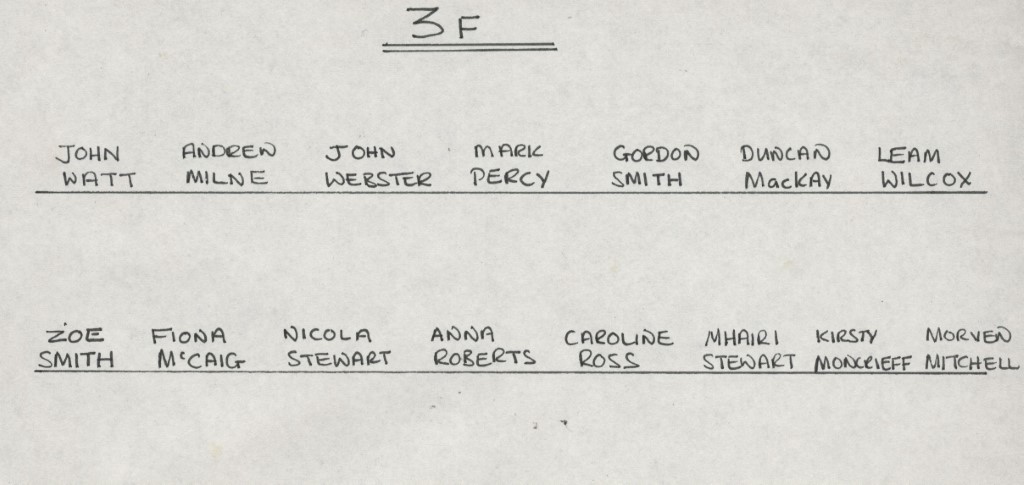 3F
JOHN ANDREW JOHN MARK GORDON DUNCAN LEAM
WATT MILNE WEBSTER PERCY SMITH MacKAY WILCOX
ZOE FIONA NICOLA ANNA CAROLINE MHAIRI KIRSTY MORVEN
SMITH McCAIG STEWART ROBERTS ROSS STEWART MONCRIEFF MITCHELL